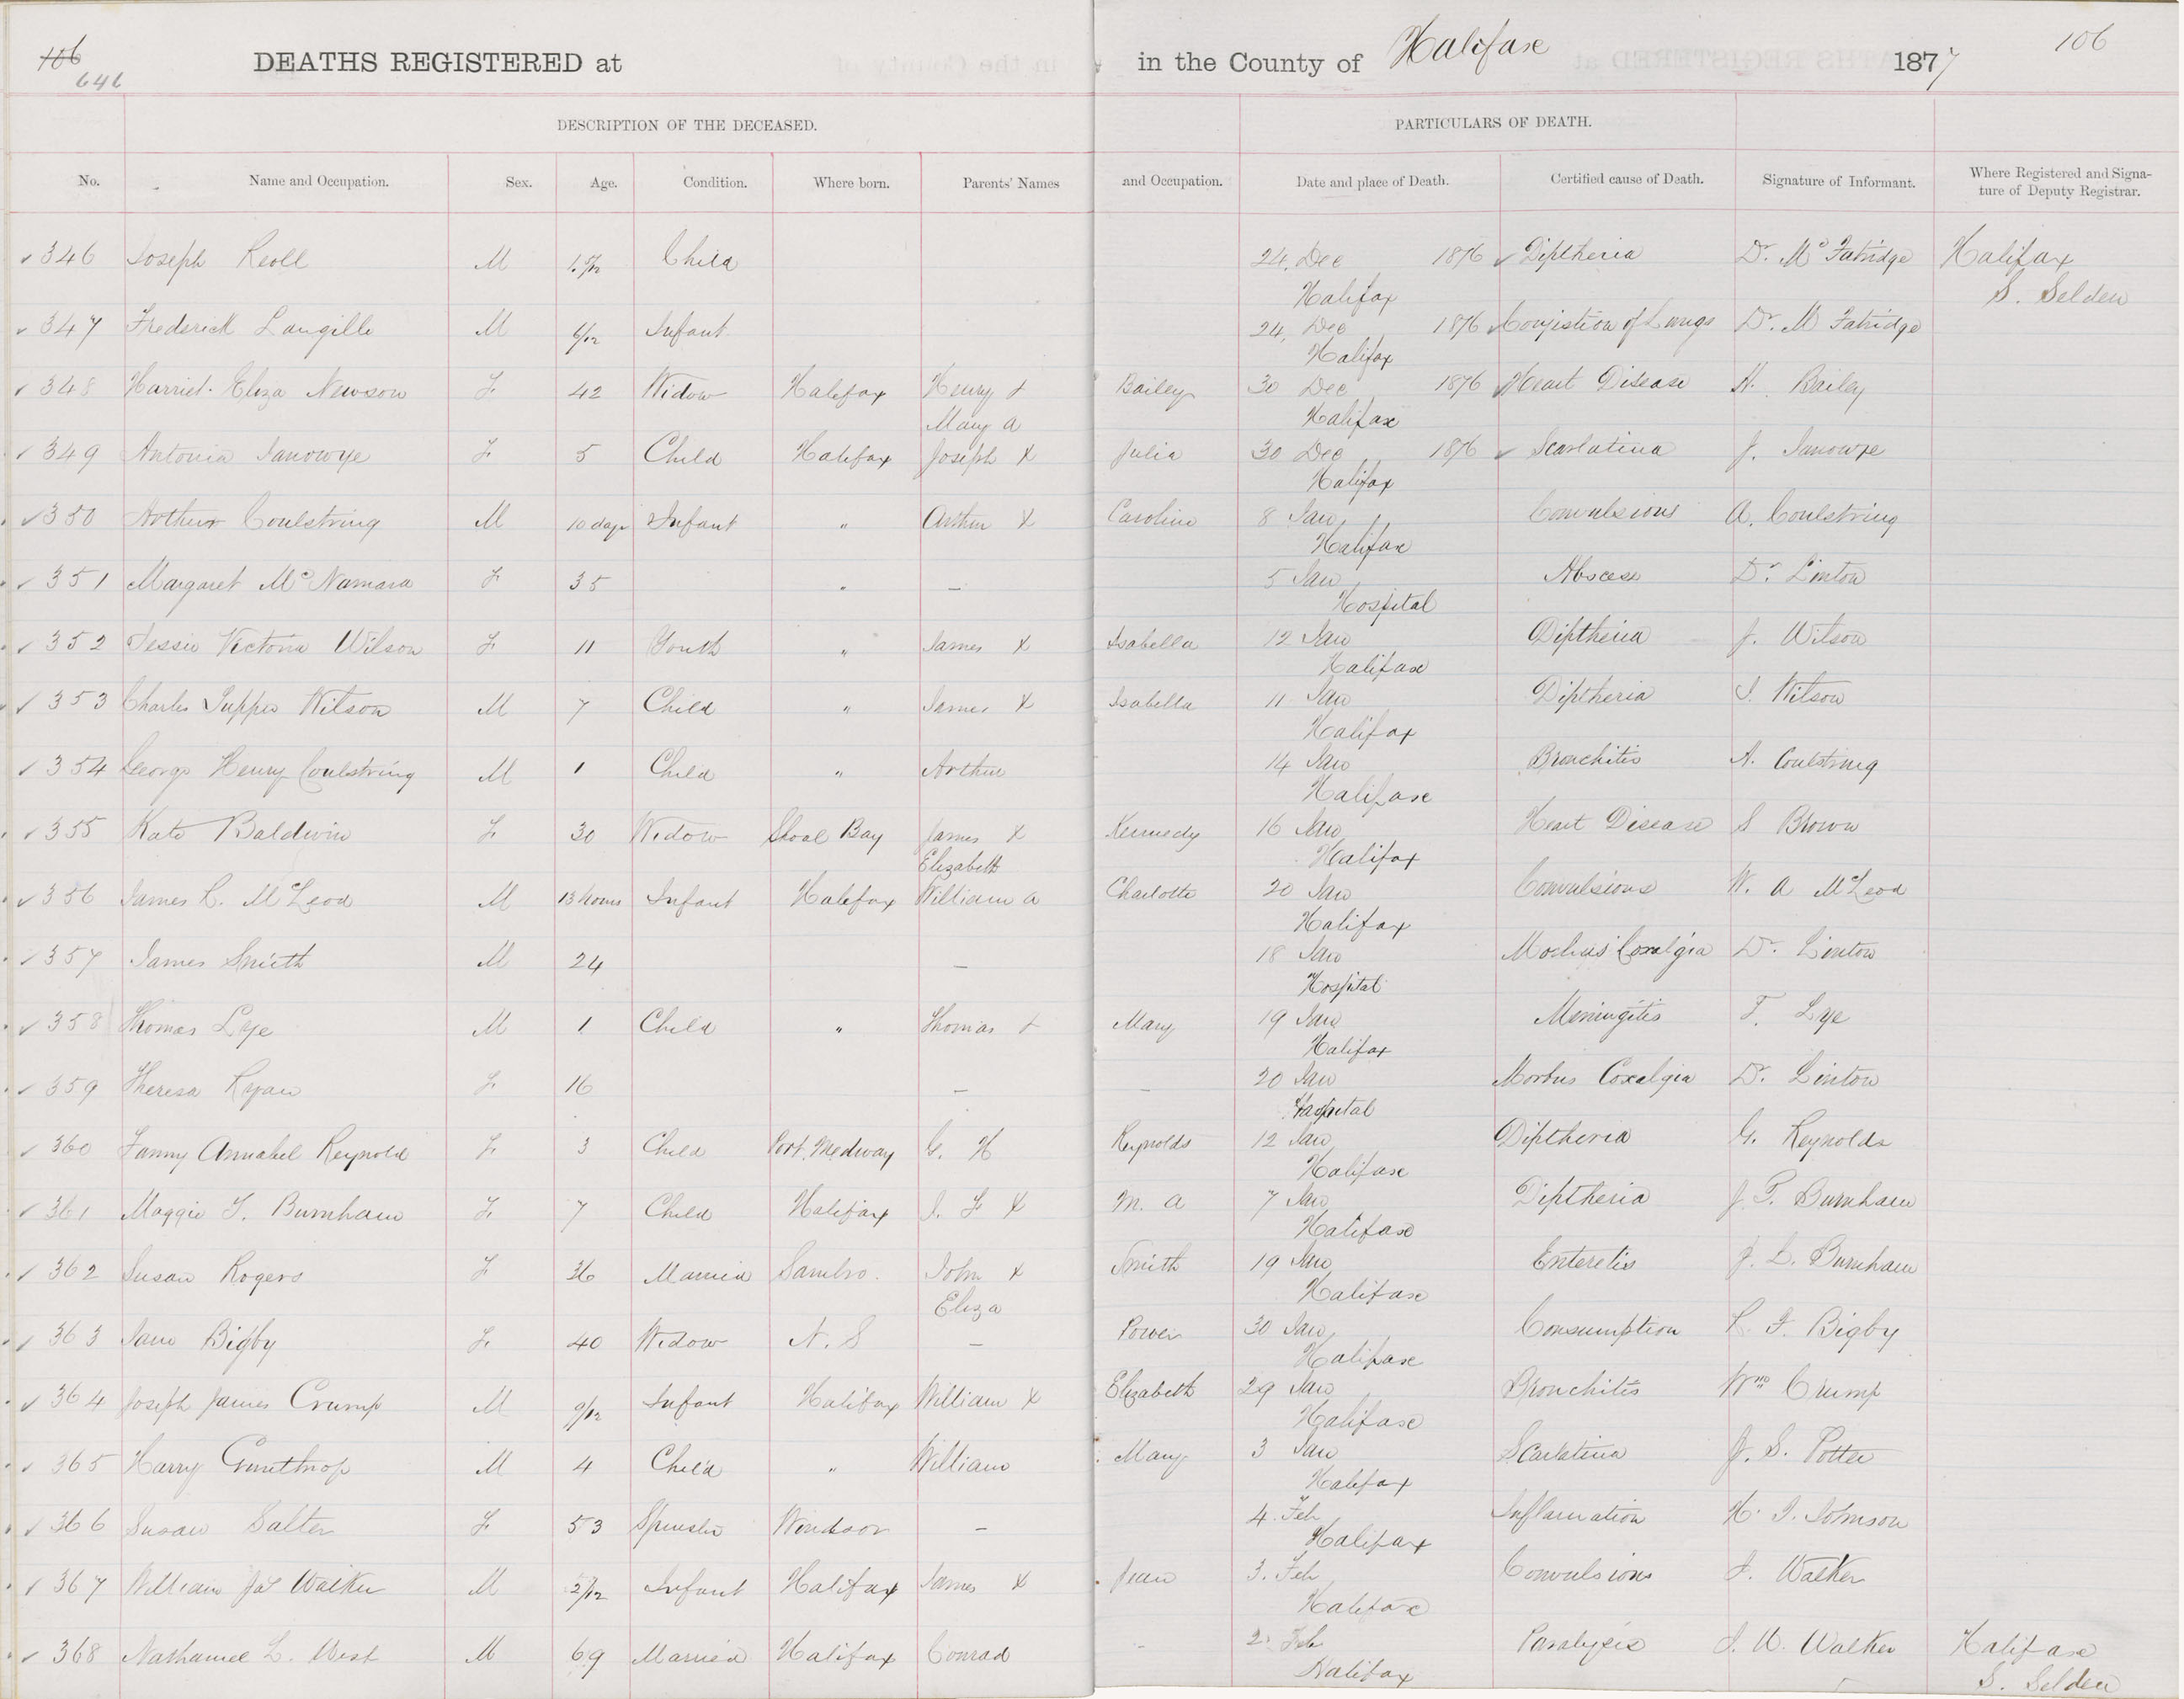 106
646
DEATHS REGISTERED at in the County of Halifax 1877 106
DESCRIPTION OF THE DECEASED. PARTICULARS OF DEATH.
No. Name and Occupation. Sex. Age. Condition. Where born. Parents' Names and Occupation. Date and place of Death. Certified cause of Death. Signature of Informant. Where Registered and Signature of Deputy Registrar.
346 Joseph M 1 5/12 Child 24, Dec 1876 Diptheria Dr. Mc Fatridge Halifax
Halifax S. Selden
347 Frederick Langille M 6/12 Infant 24, Dec 1876 Congistion of Lungs Dr. M Fatridge
Halifax
348 Harriet Eliza Newson F 42 Widow Halifax Henry + Bailey 30 Dec 1876 Heart Disease H. Bailey
Mary A Halifax
349 Antonia Janowye F 5 Child Halifax Joseph X Julia 30 Dec 1876 Scarlatina J. Janowye
Halifax
350 Arthur Coulstring M 10 days Infant " Arthur X Caroline 8 Jan Convulsions A. Coulstring
Halifax
351 Margaret Mc Namara F 35 " — 5 Jan Abscess Dr. Linton
Hospital
352 Jessie Victoria Wilson F 11 Youth " James X Isabella 12 Jan Diptheria J. Wilson
Halifax
353 Charles Tupper Wilson M 7 Child " James X Isabella 11 Jan Diptheria J. Wilson
Halifax
354 George Henry Coulstring M 1 Child " Arthur 14 Jan Bronchitis A. Coulstring
Halifax
355 Kate Baldwin F 30 Widow Shoal Bay James X Kennedy 16 Jan Heart Disease S Brown
Elizabeth Halifax
356 James R. McLeod M 13 hours Infant Halifax William A Charlotte 20 Jan Convulsions W. A McLeod
Halifax
357 James Smith M 24 — 18 Jan Morbus Coxalgia Dr. Linton
Hospital
358 Thomas Lye M 1 Child " Thomas + Mary 19 Jan Meningitis T. Lye
Halifax
359 Theresa Ryan F 16 — — 20 Jan Morbus Coxalgia Dr. Linton
Hospital
360 Fanny Annabel Reynold F 3 Child Port Medway G. H Reynolds 12 Jan Diptheria G. Reynolds
Halifax
361 Maggie F. Burnham F 7 Child Halifax J. F X M. A 7 Jan Diptheria J. F. Burnham
Halifax
362 Susan Rogers F 36 Married Sambro. John X Smith 19 Jan Enteretis J. L. Burnham
Eliza Halifax
363 Jane Bigby F 40 Widow N. S — Power 30 Jan Consumption R. F. Bigby
Halifax
364 Joseph James Crump M 9/12 Infant Halifax William X Elizabeth 29 Jan Bronchitis Wm Crump
Halifax
365 Harry Gunthrop M 4 Child " William Mary 3 Jan Scarlatina J. S. Potter
Halifax
366 Susan Salter F 53 Spinster Windsor — 4 Feb Inflamation H. I. Johnson
Halifax
367 William Jas Walker M 2/12 Infant Halifax James X Jean 3. Feb Convulsions J. Walker
Halifax
368 Nathaniel L. West M 69 Married Halifax Conrad — 2 Feb Paralysis J. W. Walker Halifax
Halifax S. Selden